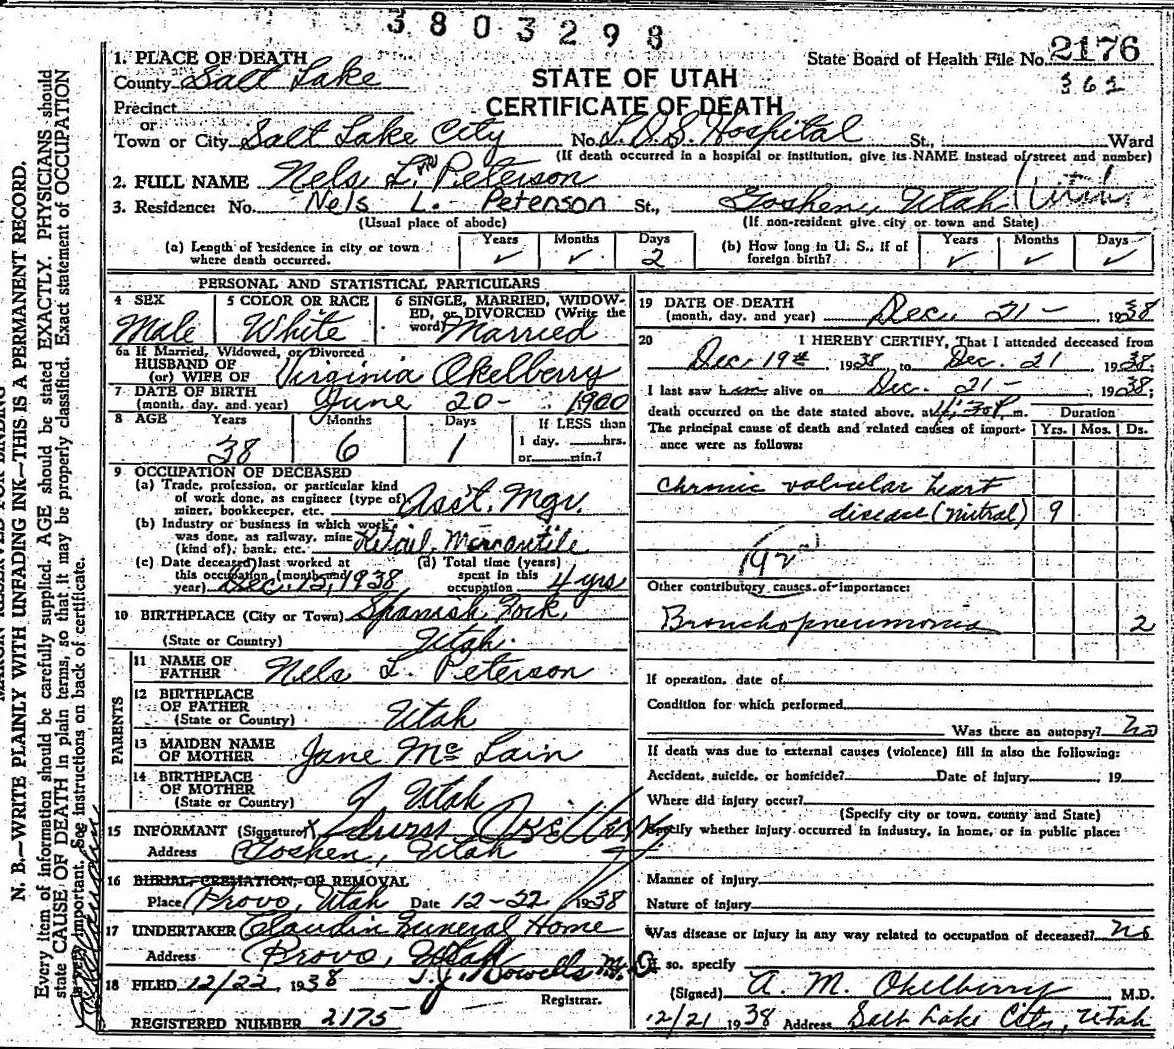 3803298
State Board of Health File No. 2176
362
STATE OF UTAH
CERTIFICATE OF DEATH
1. PLACE OF DEATH
County Salt Lake
Precinct
or
Town or City Salt Lake City No. L.D.S. Hospital St., Ward
(If death occurred in a hospital or institution, give its NAME instead of street and number)
2. FULL NAME Nels L. Peterson
3. Residence: No. Nels L. Peterson St., Goshen, Utah (Utah)
(Usual place of abode) (If non-resident give city or town and State)
(a) Length of residence in city or town where death occurred. Years ✓ Months ✓ Days 2
(b) How long in U. S., if of foreign birth? Years ✓ Months ✓ Days ✓
PERSONAL AND STATISTICAL PARTICULARS
4 SEX Male
5 COLOR OR RACE White
6 SINGLE, MARRIED, WIDOWED, OR DIVORCED (Write the word) Married
6a If Married, Widowed, or Divorced
HUSBAND OF
(or) WIFE OF Virginia Okelberry
7 DATE OF BIRTH
(month, day, and year) June 20- 1900
8 AGE Years 38 Months 6 Days 1 If LESS than 1 day. hrs. or min.?
9 OCCUPATION OF DECEASED
(a) Trade, profession, or particular kind of work done, as engineer (type of) miner, bookkeeper, etc. Asst. Mgr.
(b) Industry or business in which work was done, as railway, mine (kind of), bank, etc. Retail Mercantile
(c) Date deceased last worked at this occupation (month and year) Dec. 15, 1938
(d) Total time (years) spent in this occupation 4 yrs
10 BIRTHPLACE (City or Town) Spanish Fork,
(State or Country) Utah.
PARENTS
11 NAME OF FATHER Nels L. Peterson
12 BIRTHPLACE OF FATHER
(State or Country) Utah
13 MAIDEN NAME OF MOTHER Jane Mc Lain
14 BIRTHPLACE OF MOTHER
(State or Country) Utah
15 INFORMANT (Signature)
Address Goshen, Utah
16 BURIAL, CREMATION, OR REMOVAL
Place Provo, Utah Date 12-22 1938
17 UNDERTAKER Claudin Funeral Home
Address Provo, Utah
18 FILED 12/22, 1938 T. J. Howells M.D.
Registrar.
REGISTERED NUMBER 2175
19 DATE OF DEATH
(month, day, and year) Dec. 21- 1938
20 I HEREBY CERTIFY, That I attended deceased from
Dec. 19th, 1938, to Dec. 21 1938;
I last saw him alive on Dec. 21- 1938;
death occurred on the date stated above, at m. Duration
The principal cause of death and related causes of importance were as follows: Yrs. Mos. Ds.
Chronic valvular heart
disease (mitral) 9
Other contributory causes of importance:
Bronchopneumonia 2
If operation, date of
Condition for which performed
Was there an autopsy? No
If death was due to external causes (violence) fill in also the following:
Accident, suicide, or homicide? Date of injury 19
Where did injury occur?
(Specify city or town, county and State)
Specify whether injury occurred in industry, in home, or in public place:
Manner of injury
Nature of injury
Was disease or injury in any way related to occupation of deceased? No
If so, specify
(Signed) A. M. Okelberry M.D.
12/21 1938 Address Salt Lake City, Utah
MARGIN RESERVED FOR BINDING
N. B.—WRITE PLAINLY WITH UNFADING INK—THIS IS A PERMANENT RECORD.
Every item of information should be carefully supplied. AGE should be stated EXACTLY. PHYSICIANS should
state CAUSE OF DEATH in plain terms, so that it may be properly classified. Exact statement of OCCUPATION
is very important. See instructions on back of certificate.